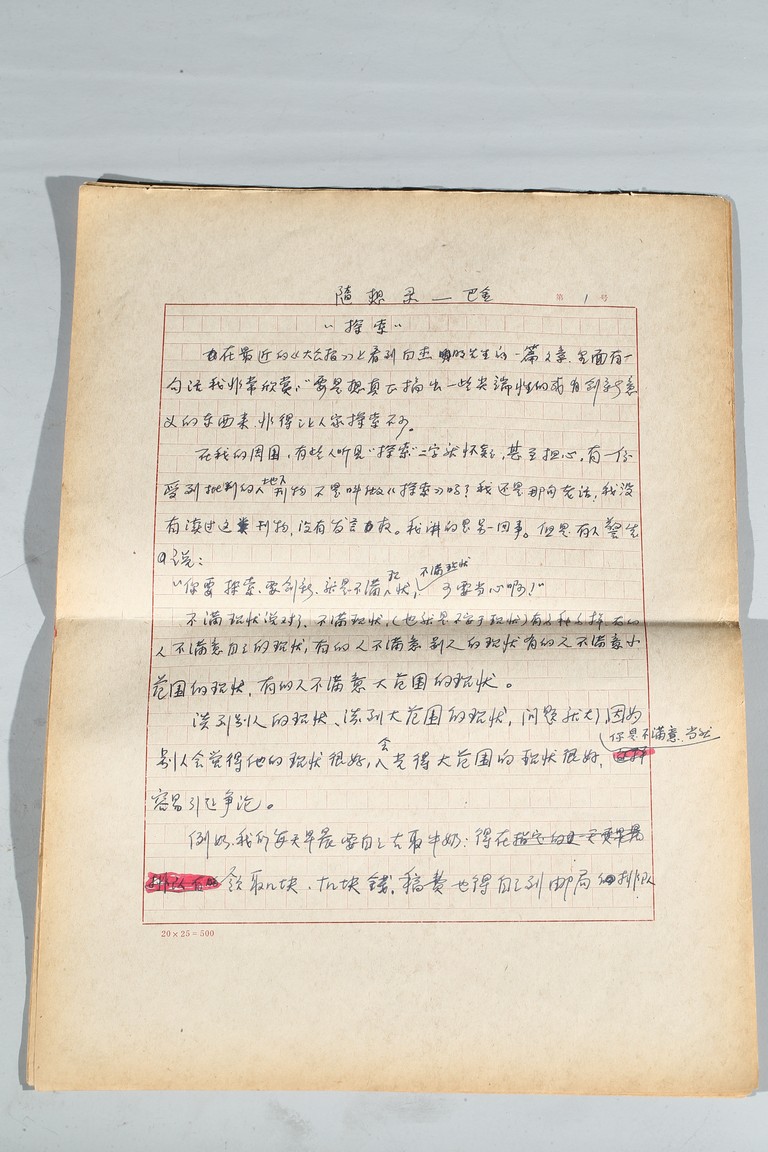 随想录—巴金
第 1 号
“探索”
在最近的《大公报》上看到白杰明先生的一篇文章，里面有一
句话我非常欣赏：“要是想真正搞出一些尖端性的或有创新意
义的东西来，非得让人家探索不可。
在我的周围，有些人听见“探索”二字就怀疑，甚至担心，有一份
受到批判的地下刊物不是叫做《探索》吗？我还是那句老话，我没
有读过这类刊物，没有发言权。我讲的是另一回事。但是有人警告
说：
“你要探索，要创新，就是不满现状，不满现状 可要当心啊！”
不满现状说对了，不满现状，（也就是不安于现状）有各种各样，有的
人不满意自己的现状，有的人不满意别人的现状 有的人不满意小
范围的现状，有的人不满意大范围的现状。
谈到别人的现状、谈到大范围的现状，问题就大了 因为
别人会觉得他的现状很好，会觉得大范围的现状很好，你是不满意，当然
容易引起争论。
例如，我们每天早晨要自己去取牛奶；得在
领取几块、十几块钱，稿费也得自己到邮局排队
20×25=500